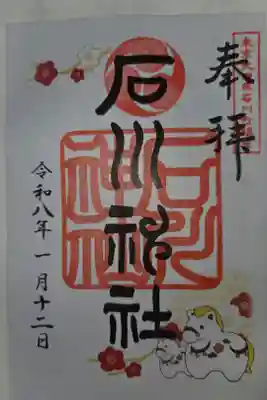 奉拝
石川神社
令和八年一月十二日